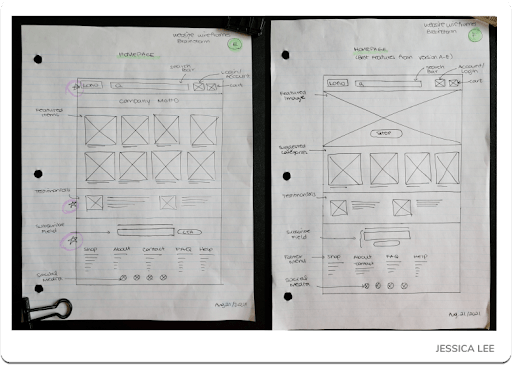 Website Wireframe
Brainstorm
HOMEPAGE
Search
Bar
Login/
Account
LOGO
Cart
Company Motto
Featured
Items
Testimonials
Subscribe
Field
CTA
Shop
About
Contact
FAQ
Help
Social
Media
Aug 21/2021
Website Wireframe
Brainstorm
HOMEPAGE
(Best Features from Version A-B)
Search
Bar
Account/
Login
LOGO
Cart
Featured
Image
Suggested
Categories
Testimonials
Subscribe
Field
Footer
Menu
Shop
About
Contact
FAQ
Help
Social
Media
Aug 21/2021
JESSICA LEE